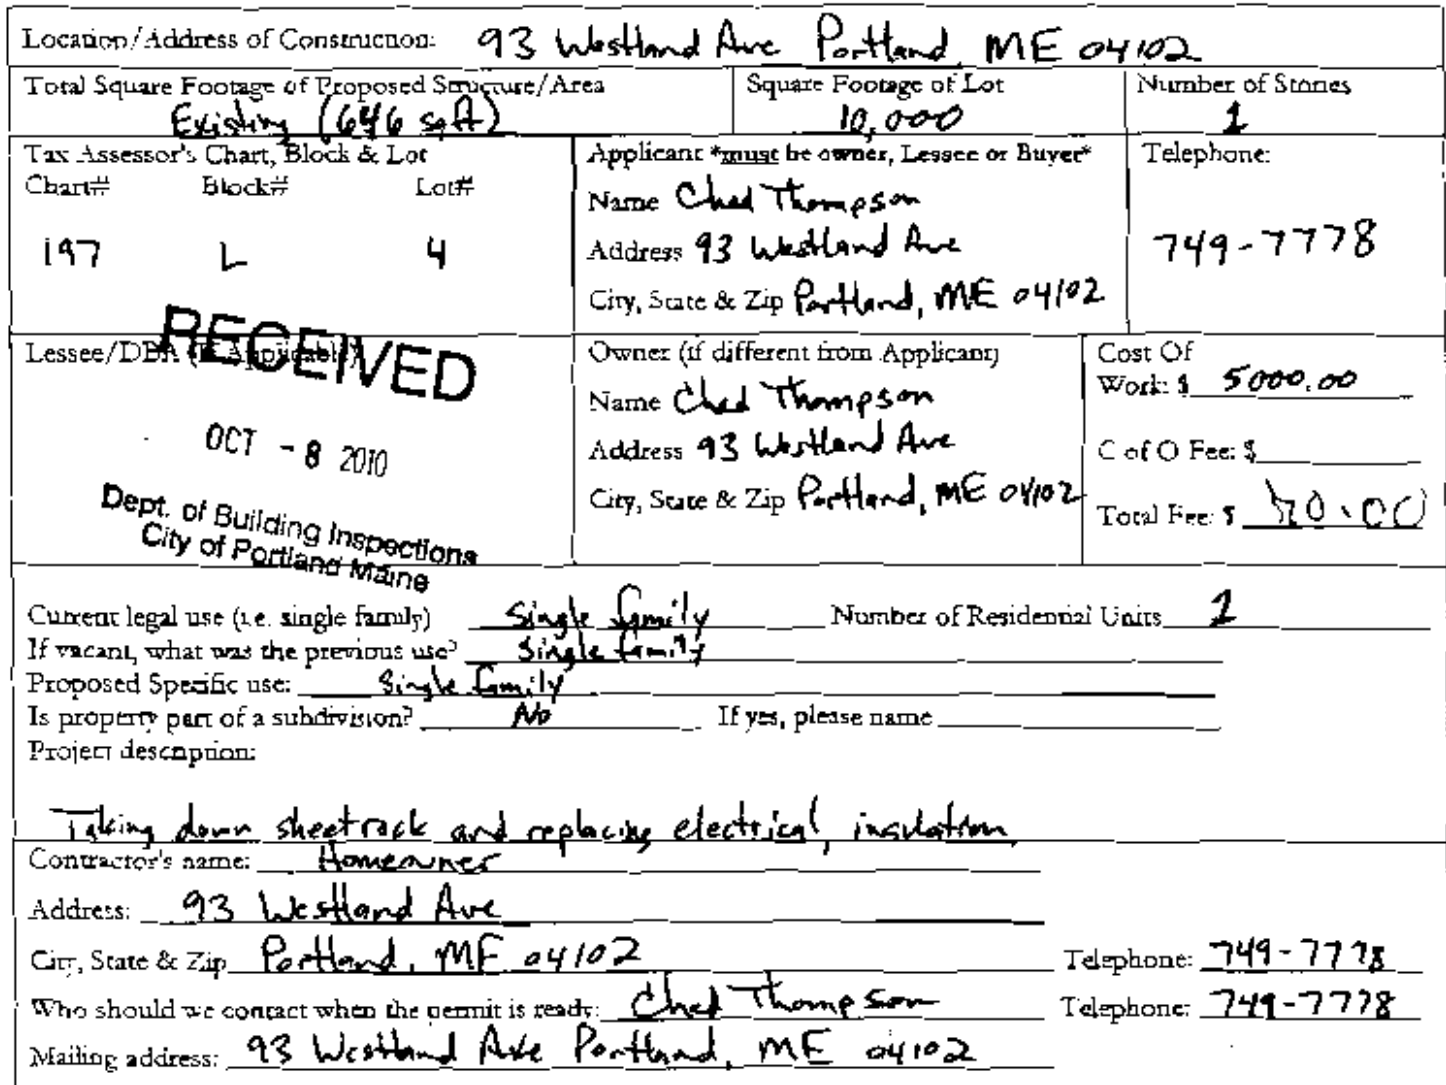 Location/Address of Construction: 93 Westland Ave Portland, ME 04102
Total Square Footage of Proposed Structure/Area
Existing (646 sqft)
Square Footage of Lot
10,000
Number of Stories
1
Tax Assessor's Chart, Block & Lot
Chart# Block# Lot#
197 L 4
Applicant *must be owner, Lessee or Buyer*
Name Chad Thompson
Address 93 Westland Ave
City, State & Zip Portland, ME 04102
Telephone:
749-7778
Lessee/DBA (If Applicable)
RECEIVED
OCT - 8 2010
Dept. of Building Inspections
City of Portland Maine
Owner (if different from Applicant)
Name Chad Thompson
Address 93 Westland Ave
City, State & Zip Portland, ME 04102
Cost Of
Work: $ 5000.00
C of O Fee: $
Total Fee: $
Current legal use (i.e. single family) Single family Number of Residential Units 1
If vacant, what was the previous use? Single family
Proposed Specific use: Single family
Is property part of a subdivision? No If yes, please name
Project description:
Taking down sheetrock and replacing electrical, insulation
Contractor's name: Homeowner
Address: 93 Westland Ave
City, State & Zip Portland, ME 04102 Telephone: 749-7778
Who should we contact when the permit is ready: Chad Thompson Telephone: 749-7778
Mailing address: 93 Westland Ave Portland, ME 04102